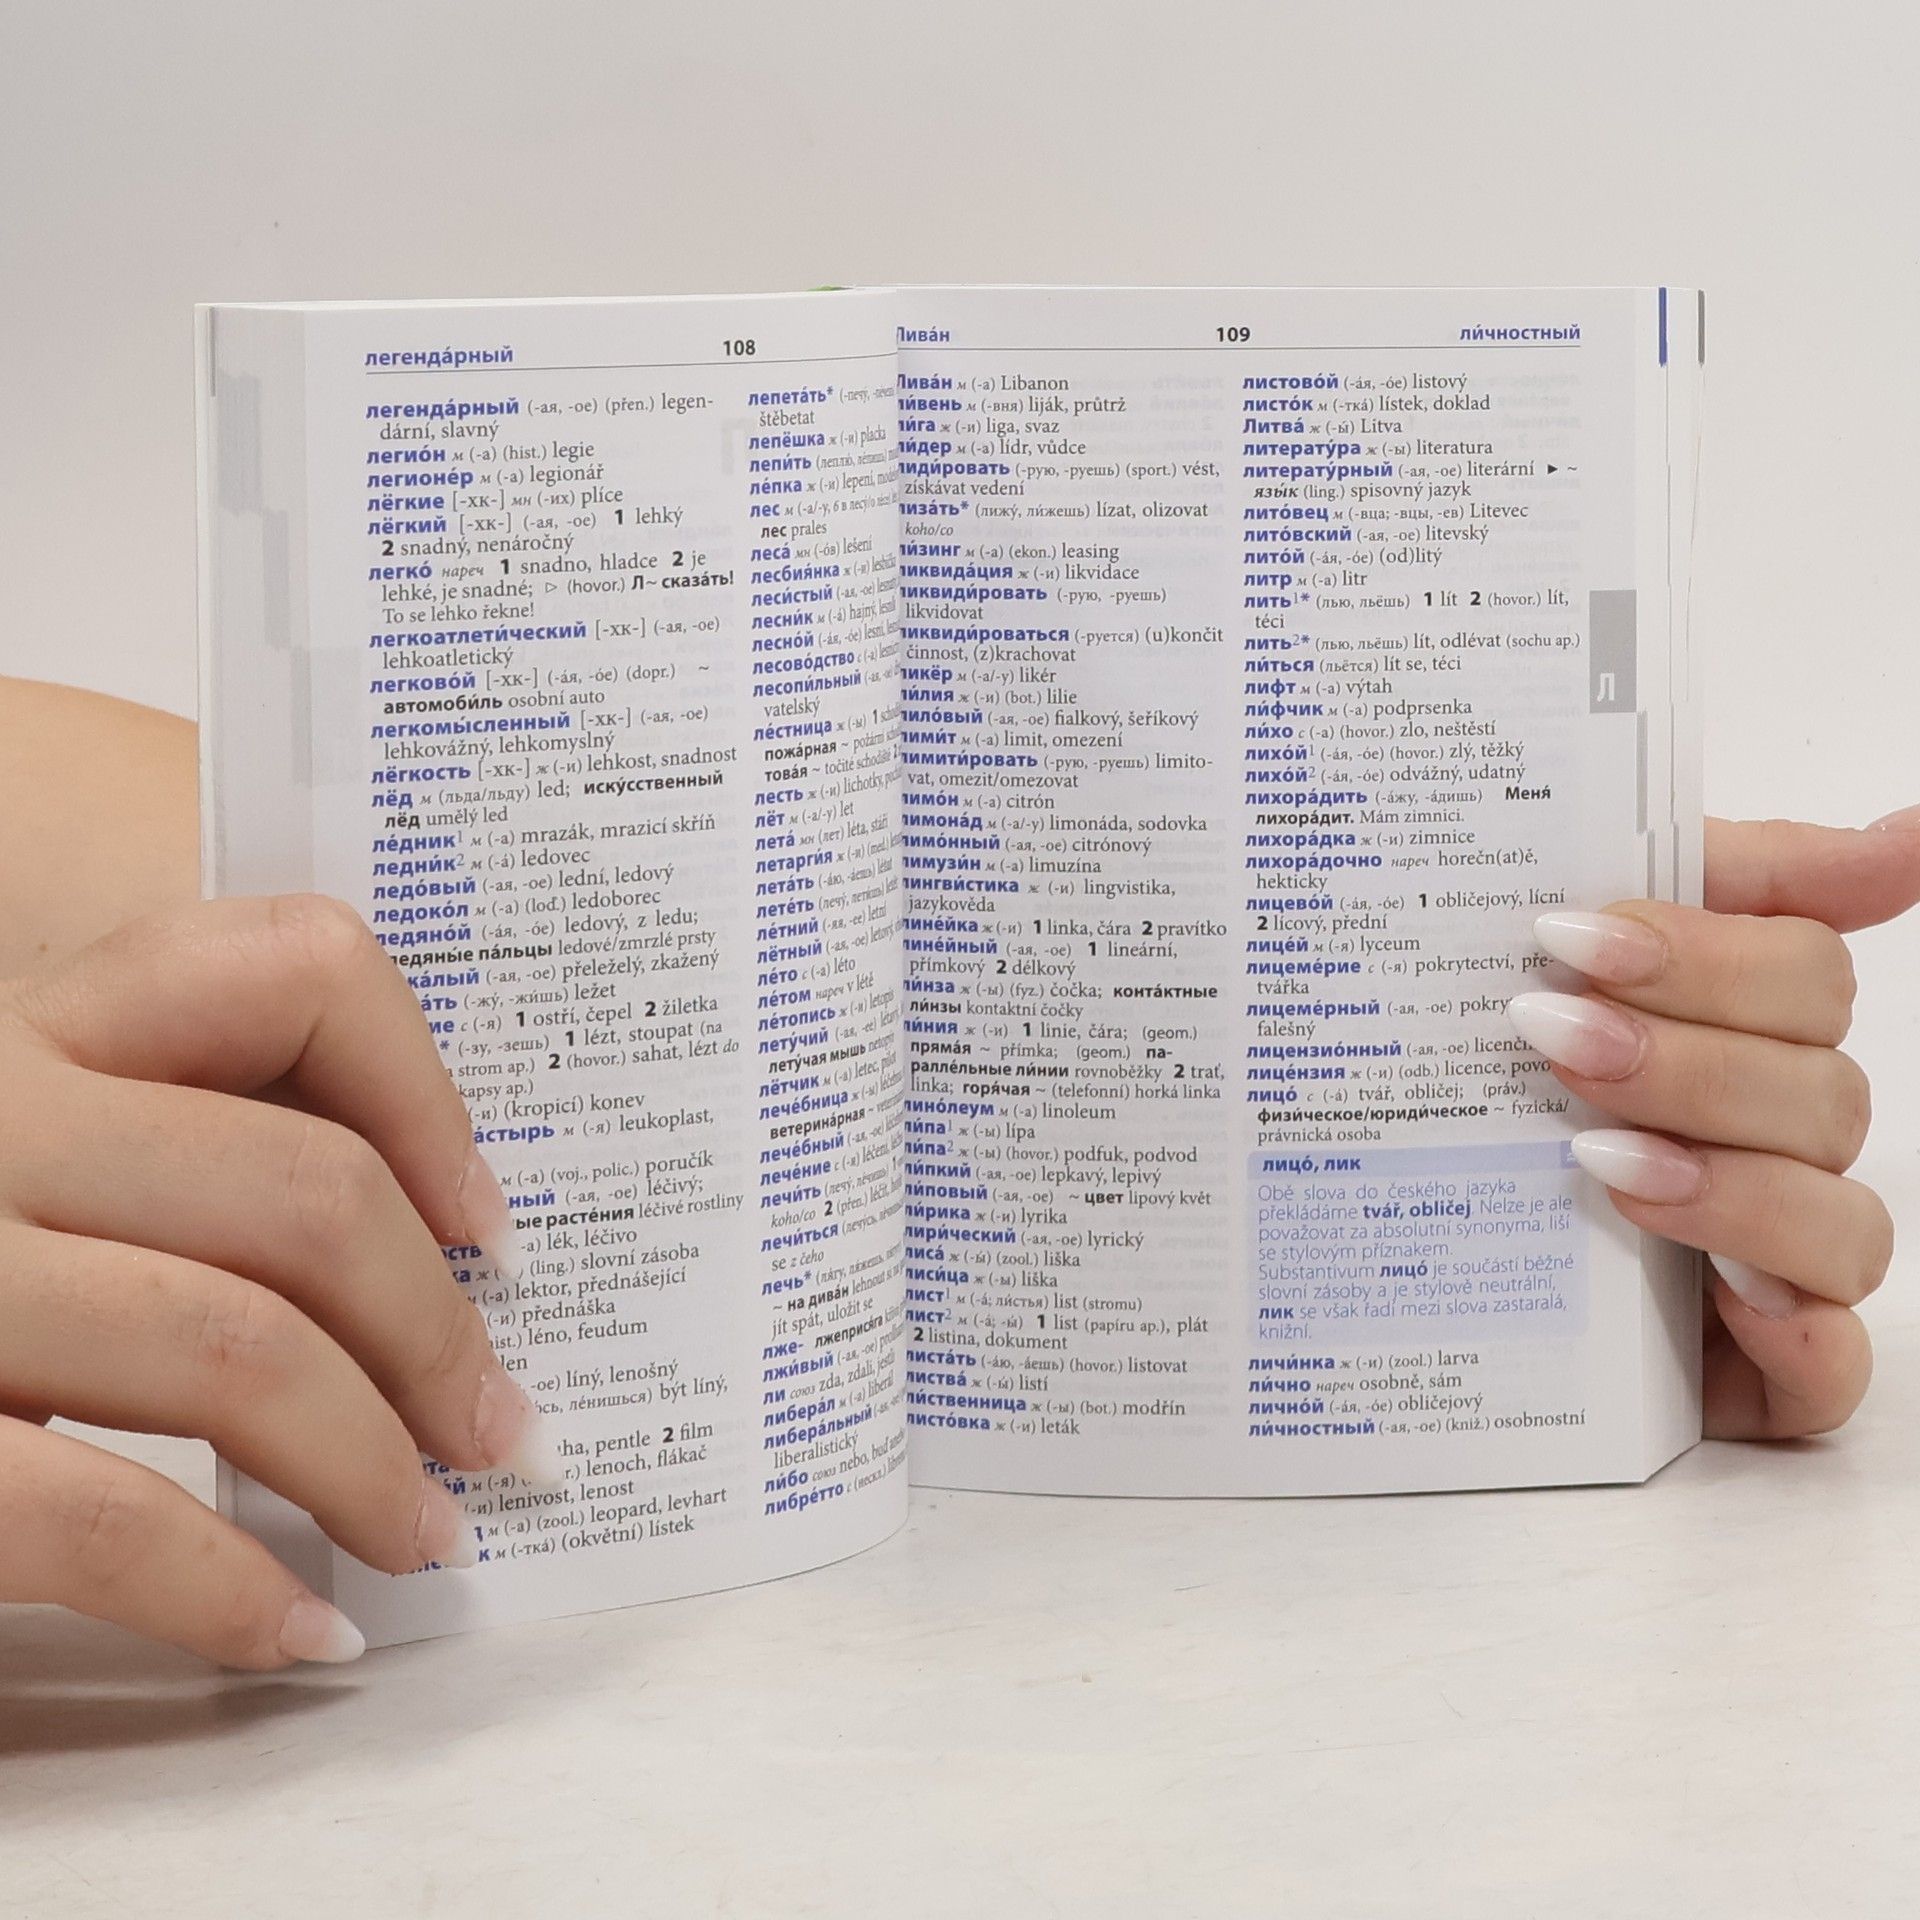 легенда́рный 108
легенда́рный (-ая, -ое) (přen.) legen-
dární, slavný
легио́н м (-а) (hist.) legie
легионе́р м (-а) legionář
лёгкие [-хк-] мн (-их) plíce
лёгкий [-хк-] (-ая, -ое) 1 lehký
2 snadný, nenáročný
легко́ нареч 1 snadno, hladce 2 je
lehké, je snadné; ▷ (hovor.) Л~ сказа́ть!
To se lehko řekne!
легкоатлети́ческий [-хк-] (-ая, -ое)
lehkoatletický
легково́й [-хк-] (-а́я, -о́е) (dopr.) ~
автомоби́ль osobní auto
легкомы́сленный [-хк-] (-ая, -ое)
lehkovážný, lehkomyslný
лёгкость [-хк-] ж (-и) lehkost, snadnost
лёд м (льда/льду) led; иску́сственный
лёд umělý led
ле́дник1 м (-а) mrazák, mrazicí skříň
ледни́к2 м (-а́) ledovec
ледо́вый (-ая, -ое) lední, ledový
ледоко́л м (-а) (loď.) ledoborec
ледяно́й (-а́я, -о́е) ledový, z ledu;
ледяны́е па́льцы ledové/zmrzlé prsty
(-ая, -ое) přeleželý, zkažený
(-жу́, -жи́шь) ležet
с (-я) 1 ostří, čepel 2 žiletka
* (-зу, -зешь) 1 lézt, stoupat (na
strom ap.) 2 (hovor.) sahat, lézt do
kapsy ap.)
(-и) (kropicí) konev
м (-я) leukoplast,
м (-а) (voj., polic.) poručík
(-ая, -ое) léčivý;
расте́ния léčivé rostliny
lék, léčivo
(ling.) slovní zásoba
(-а) lektor, přednášející
(-и) přednáška
léno, feudum
len
-ое) líný, lenošný
ле́нишься) být líný,
pentle 2 film
м (-я) lenoch, flákač
(-и) lenivost, lenost
м (-а) (zool.) leopard, levhart
м (-тка́) (okvětní) lístek
лепета́ть*
štěbetat
лепёшка ж (-и) placka
лепи́ть
ле́пка ж (-и) lepení,
лес м
лес prales
леса́ мн (-о́в) lešení
лесбия́нка ж (-и)
леси́стый (-ая, -ое)
лесни́к м (-а́) hajný,
лесно́й (-а́я, -о́е) lesní,
лесово́дство с (-а)
лесопи́льный
vatelský
ле́стница ж (-ы) 1
пожа́рная ~ požární
това́я ~ točité schodiště 2
лесть ж (-и) lichotky,
лёт м (-а/-у) let
лета́ мн (лет) léta, stáří
летарги́я ж (-и) (med.)
лета́ть (-а́ю, -а́ешь) létat
лете́ть (лечу́, лети́шь)
ле́тний (-яя, -ее) letní
лётный (-ая, -ое)
ле́то с (-а) léto
ле́том нареч v létě
ле́топись ж (-и) letopis
лету́чий (-ая, -ее)
лету́чая мышь netopýr
лётчик м (-а) letec, pilot
лече́бница ж (-ы)
ветерина́рная ~
лече́бный (-ая, -ое)
лече́ние с (-я) léčení,
лечи́ть (лечу́, ле́чишь) 1
koho/co 2 (přen.) léčit,
лечи́ться
se z čeho
лечь* (ля́гу, ля́жешь,
~ на дива́н lehnout si na
jít spát, uložit se
лже- лжеприся́га
лжи́вый (-ая, -ое)
ли союз zda, zdali, jestli
либера́л м (-а) liberál
либера́льный
liberalistický
ли́бо союз nebo, buď anebo
либре́тто с (нескл.)
Лива́н 109 ли́чностный
Лива́н м (-а) Libanon
ли́вень м (-вня) liják, průtrž
ли́га ж (-и) liga, svaz
ли́дер м (-а) lídr, vůdce
лиди́ровать (-рую, -руешь) (sport.) vést,
získávat vedení
лиза́ть* (лижу́, ли́жешь) lízat, olizovat
koho/co
ли́зинг м (-а) (ekon.) leasing
ликвида́ция ж (-и) likvidace
ликвиди́ровать (-рую, -руешь)
likvidovat
ликвиди́роваться (-руется) (u)končit
činnost, (z)krachovat
ликёр м (-а/-у) likér
ли́лия ж (-и) (bot.) lilie
лило́вый (-ая, -ое) fialkový, šeříkový
лими́т м (-а) limit, omezení
лимити́ровать (-рую, -руешь) limito-
vat, omezit/omezovat
лимо́н м (-а) citrón
лимона́д м (-а/-у) limonáda, sodovka
лимо́нный (-ая, -ое) citrónový
лимузи́н м (-а) limuzína
лингви́стика ж (-и) lingvistika,
jazykověda
лине́йка ж (-и) 1 linka, čára 2 pravítko
лине́йный (-ая, -ое) 1 lineární,
přímkový 2 délkový
ли́нза ж (-ы) (fyz.) čočka; конта́ктные
ли́нзы kontaktní čočky
ли́ния ж (-и) 1 linie, čára; (geom.)
пряма́я ~ přímka; (geom.) па-
ралле́льные ли́нии rovnoběžky 2 trať,
linka; горя́чая ~ (telefonní) horká linka
лино́леум м (-а) linoleum
ли́па1 ж (-ы) lípa
ли́па2 ж (-ы) (hovor.) podfuk, podvod
ли́пкий (-ая, -ое) lepkavý, lepivý
ли́повый (-ая, -ое) ~ цвет lipový květ
ли́рика ж (-и) lyrika
лири́ческий (-ая, -ое) lyrický
лиса́ ж (-ы́) (zool.) liška
лиси́ца ж (-ы) liška
лист1 м (-а́; ли́стья) list (stromu)
лист2 м (-а́; -ы́) 1 list (papíru ap.), plát
2 listina, dokument
листа́ть (-а́ю, -а́ешь) (hovor.) listovat
листва́ ж (-ы́) listí
ли́ственница ж (-ы) (bot.) modřín
листо́вка ж (-и) leták
листово́й (-а́я, -о́е) listový
листо́к м (-тка́) lístek, doklad
Литва́ ж (-ы́) Litva
литерату́ра ж (-ы) literatura
литерату́рный (-ая, -ое) literární ► ~
язы́к (ling.) spisovný jazyk
лито́вец м (-вца; -вцы, -ев) Litevec
лито́вский (-ая, -ое) litevský
лито́й (-а́я, -о́е) (od)litý
литр м (-а) litr
лить1* (лью, льёшь) 1 lít 2 (hovor.) lít,
téci
лить2* (лью, льёшь) lít, odlévat (sochu ap.)
ли́ться (льётся) lít se, téci
лифт м (-а) výtah
ли́фчик м (-а) podprsenka
ли́хо с (-а) (hovor.) zlo, neštěstí
лихо́й1 (-а́я, -о́е) (hovor.) zlý, těžký
лихо́й2 (-а́я, -о́е) odvážný, udatný
лихора́дить (-а́жу, -а́дишь) Меня
лихора́дит. Mám zimnici.
лихора́дка ж (-и) zimnice
лихора́дочно нареч horečn(at)ě,
hekticky
лицево́й (-а́я, -о́е) 1 obličejový, lícní
2 lícový, přední
лице́й м (-я) lyceum
лицеме́рие с (-я) pokrytectví, pře-
tvářka
лицеме́рный (-ая, -ое)
falešný
лицензио́нный (-ая, -ое)
лице́нзия ж (-и) (odb.) licence,
лицо́ с (-а́) tvář, obličej; (práv.)
физи́ческое/юриди́ческое ~ fyzická/
právnická osoba
лицо́, лик
Obě slova do českého jazyka
překládáme tvář, obličej. Nelze je ale
považovat za absolutní synonyma, liší
se stylovým příznakem.
Substantivum лицо́ je součástí běžné
slovní zásoby a je stylově neutrální,
лик se však řadí mezi slova zastaralá,
knižní.
личи́нка ж (-и) (zool.) larva
ли́чно нареч osobně, sám
лично́й (-а́я, -о́е) obličejový
ли́чностный (-ая, -ое) (kniž.) osobnostní
Л